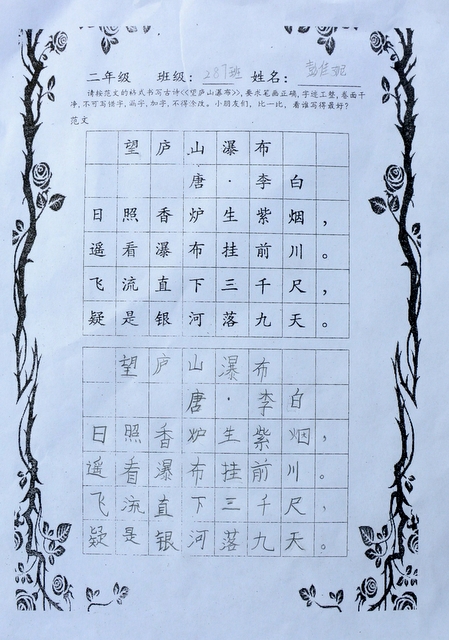 二年级 班级：287班 姓名：
请按范文的格式书写古诗《《望庐山瀑布》》，要求笔画正确，字迹工整，卷面干
净，不可写错字，漏字，加字，不得涂改。小朋友们，比一比，看谁写得最好？
范文
望庐山瀑布
唐·李白
日照香炉生紫烟，
遥看瀑布挂前川。
飞流直下三千尺，
疑是银河落九天。
望庐山瀑布
唐·李白
日照香炉生紫烟，
遥看瀑布挂前川。
飞流直下三千尺，
疑是银河落九天。